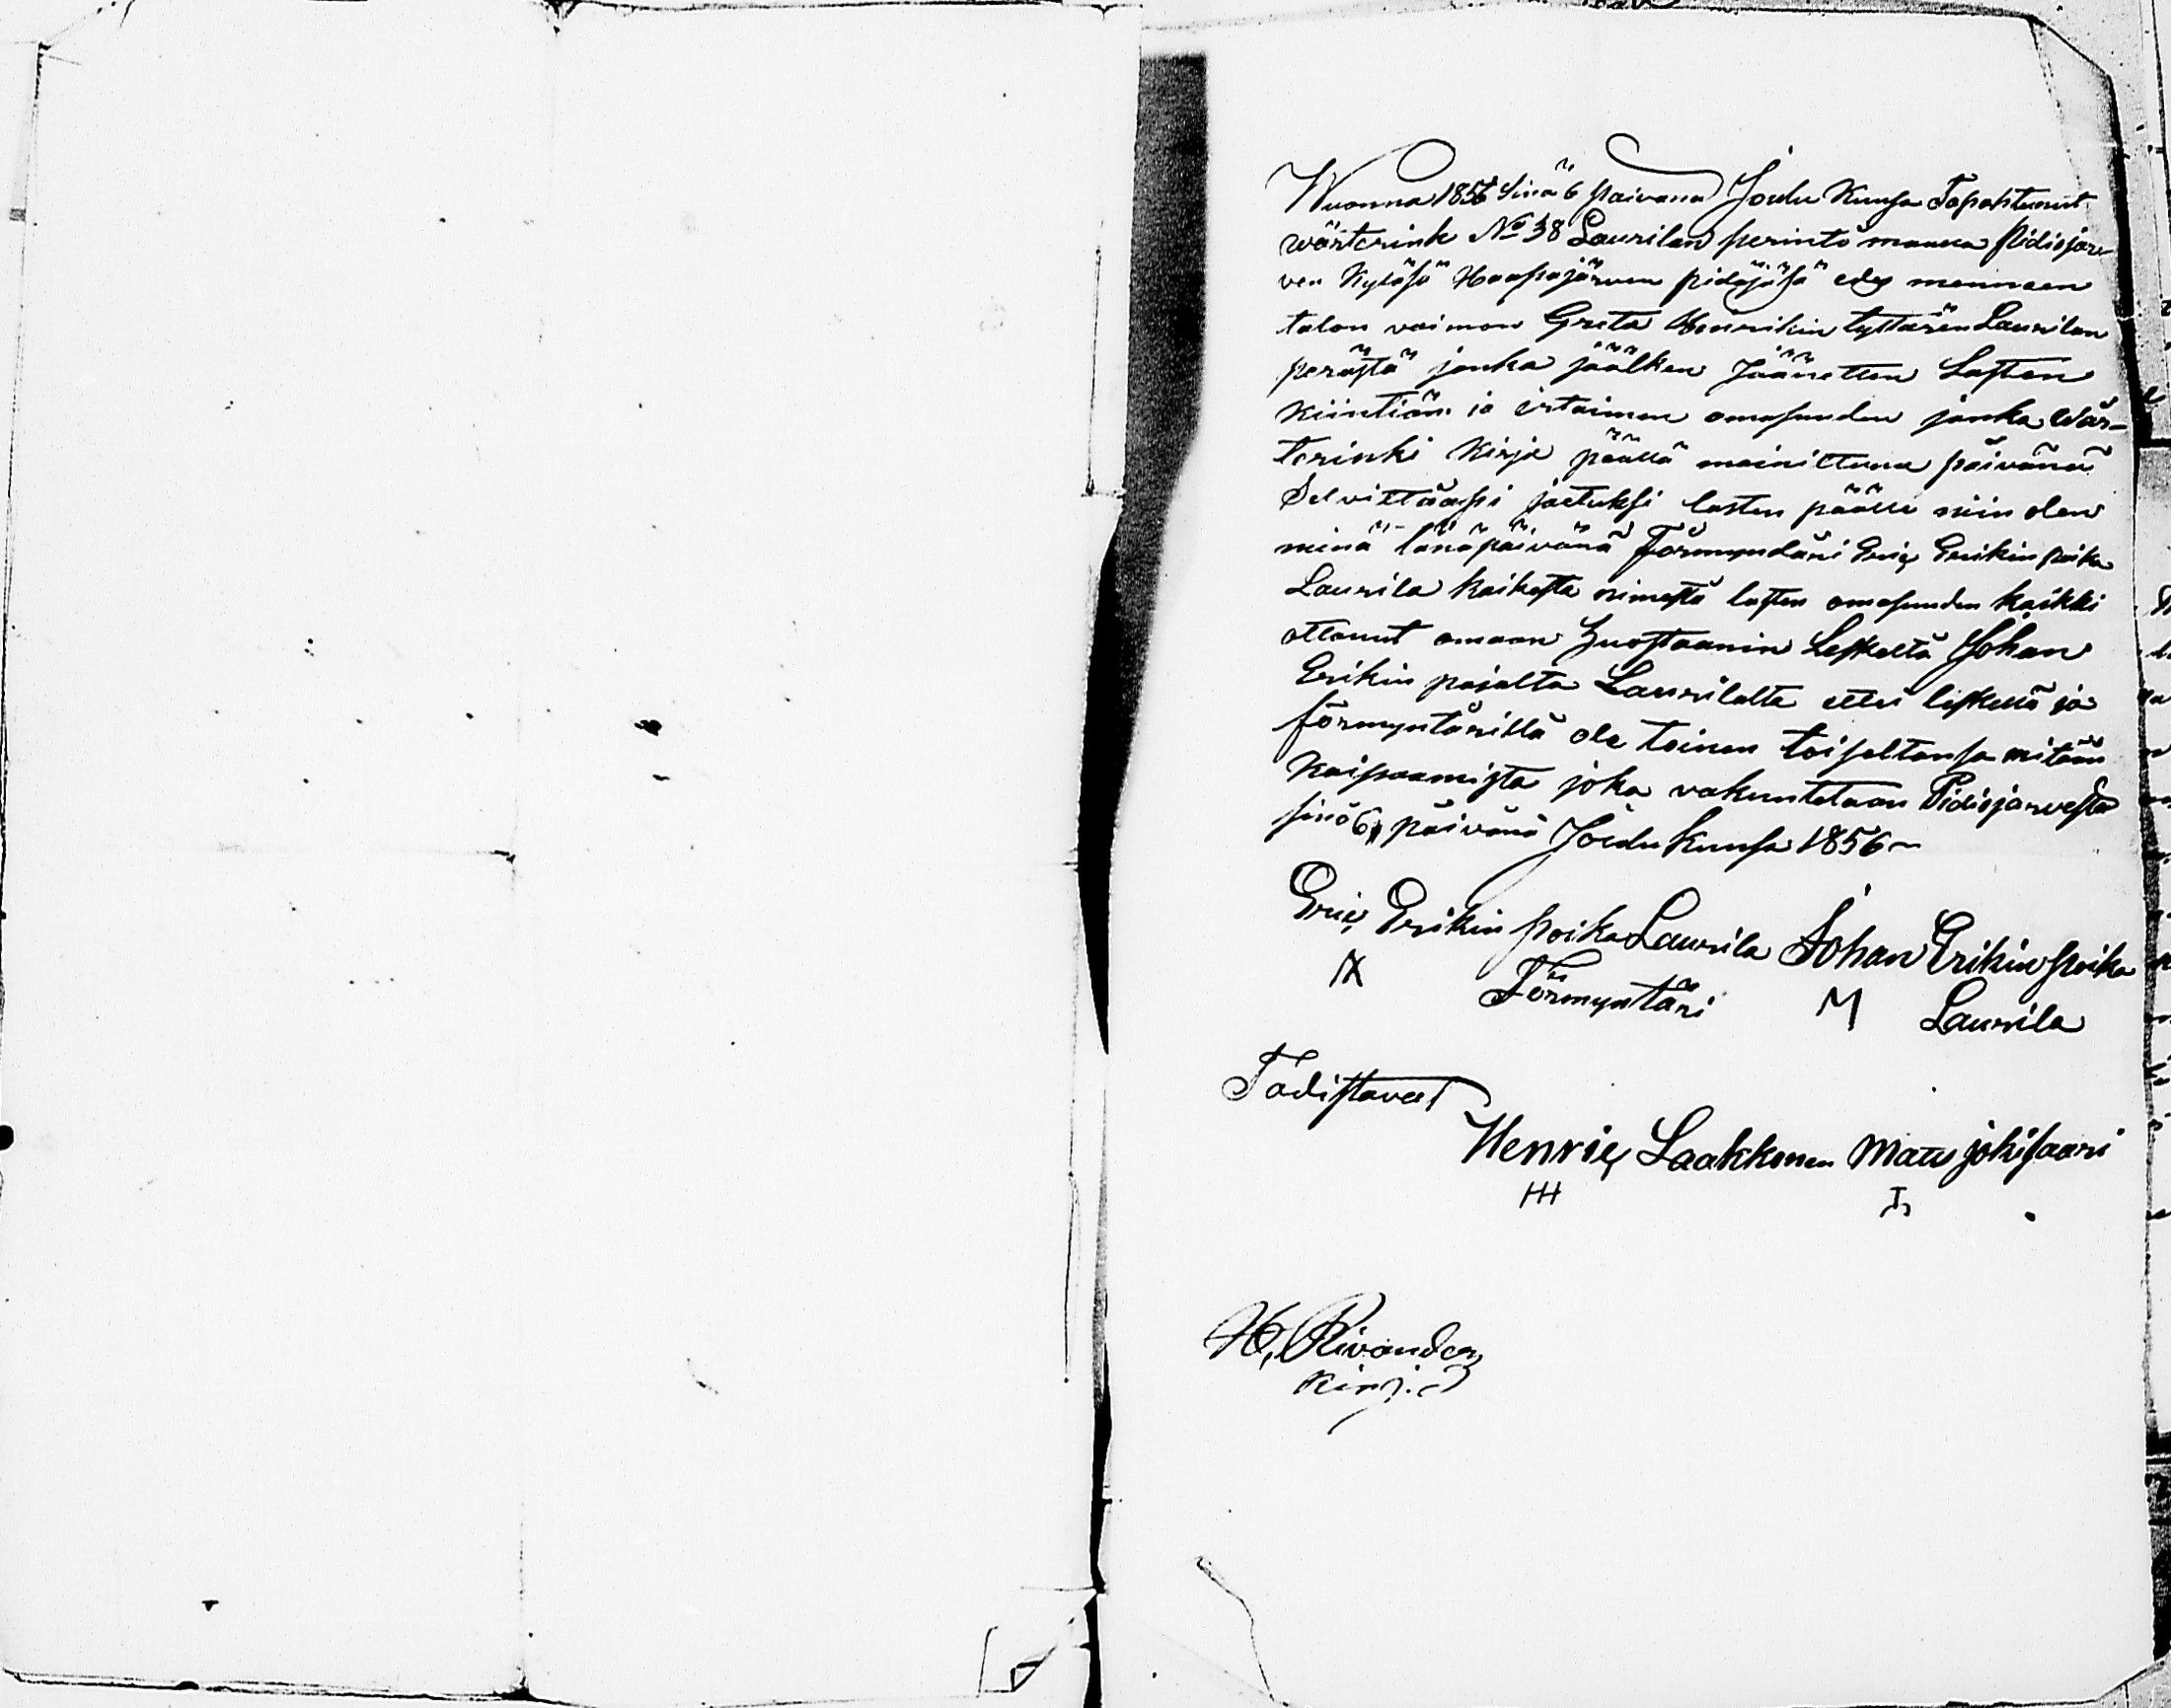 Wuonna 1856 Sinä 6 päivänä Joulu Kuusa Tapahtunut
wärterink No 38 Laurilan perintö maasa Pidisjär-
ven Kyläsä Haapajärven pidäjäsä edes mennen
talon vaimon Greta Henrikin tyttären Laurilan
perästä jonka jäälken Jäänetten Lasten
Kiintiän ja irtaimen omasuuden jonka Wär-
terinki Kirja päällä mainittuna päivänä
Selvittääpi jaetuksi lasten päälle niin olen
minä tänäpäivänä Förmyndäri Eric Erikin poika
Laurila kaikesta nimestä lasten omasuuden kaikki
ottanut omaan huostaanin Leskeltä Johan
Erikin pojalta Laurilalta ettei leskellä ja
förmyntärillä ole toinen toiseltansa mitään
Kaipaamista joka vakuutetaan Pidisjärvestä
sinä 6 päivänä Joulu kuusa 1856
Eric Erikin poika Laurila Johan Erikin poika
Förmyntäri M Laurila
Todistavat
Henric Laakkonen Mats jokisaari
H. Rivander
Kirj.